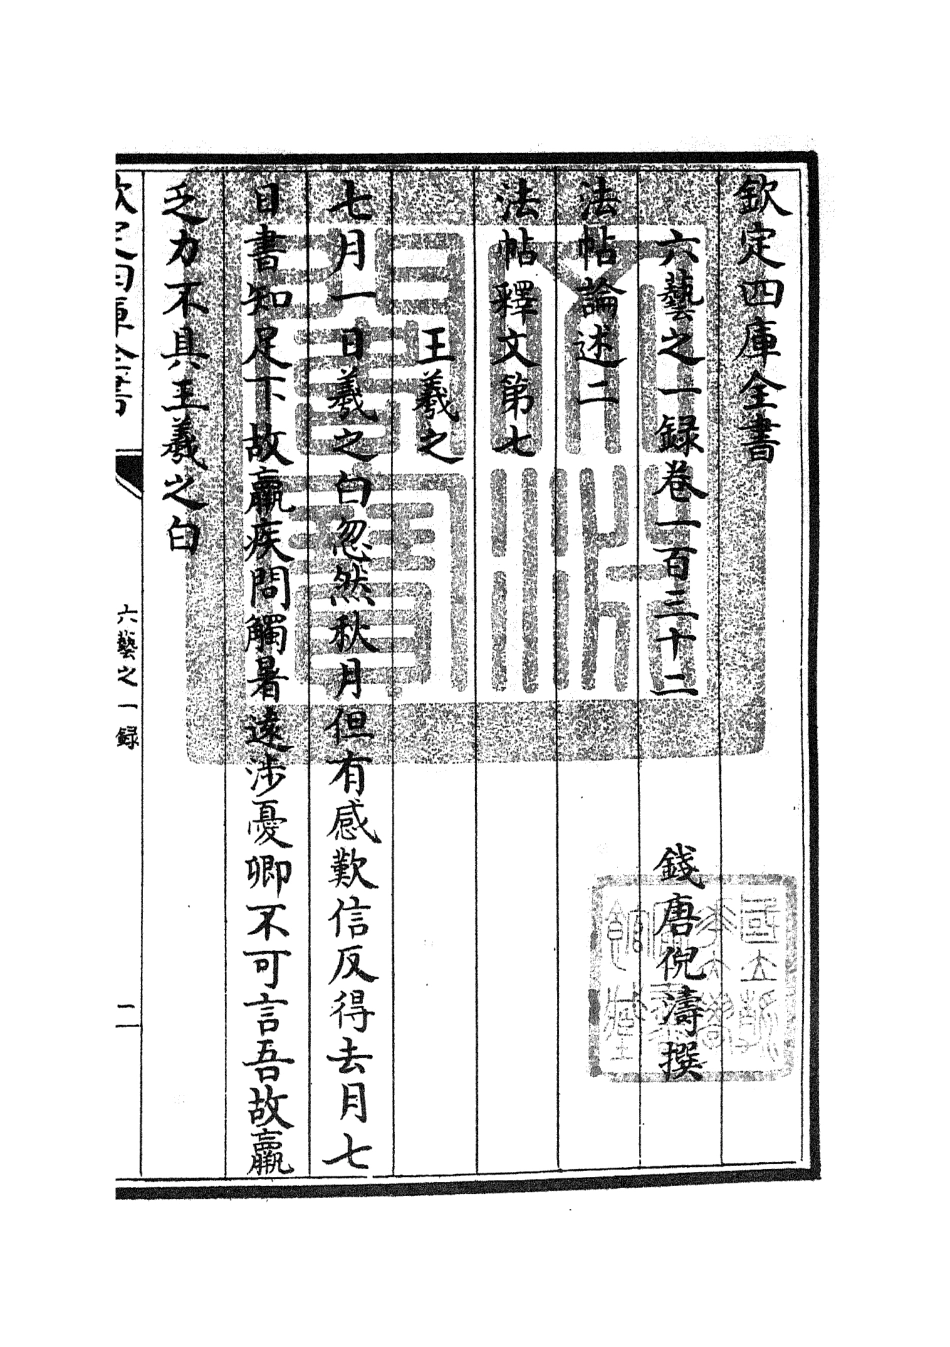 欽定四庫全書
六藝之一錄卷一百三十二
錢唐倪濤撰
法帖論述二
法帖釋文第七
王羲之
七月一日羲之白忽然秋月但有感歎信反得去月七
日書知足下故羸疾問觸暑遠涉憂卿不可言吾故羸
乏力不具王羲之白
欽定四庫全書
六藝之一錄
二